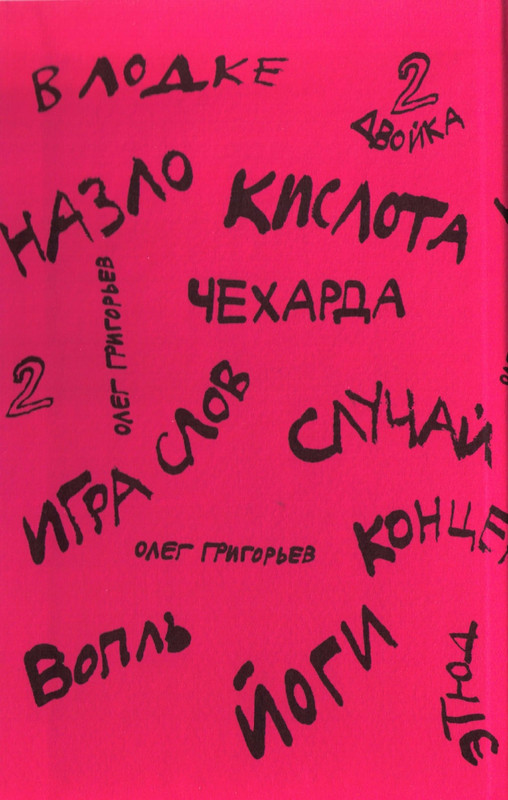 В ЛОДКЕ
2
ДВОЙКА
НАЗЛО
КИСЛОТА
ОЛЕГ ГРИГОРЬЕВ
ЧЕХАРДА
2
ИГРА СЛОВ
СЛУЧАЙ
КОНЦЕ
ОЛЕГ ГРИГОРЬЕВ
ВОПЛЬ
ЙОГИ
ЭТЮД